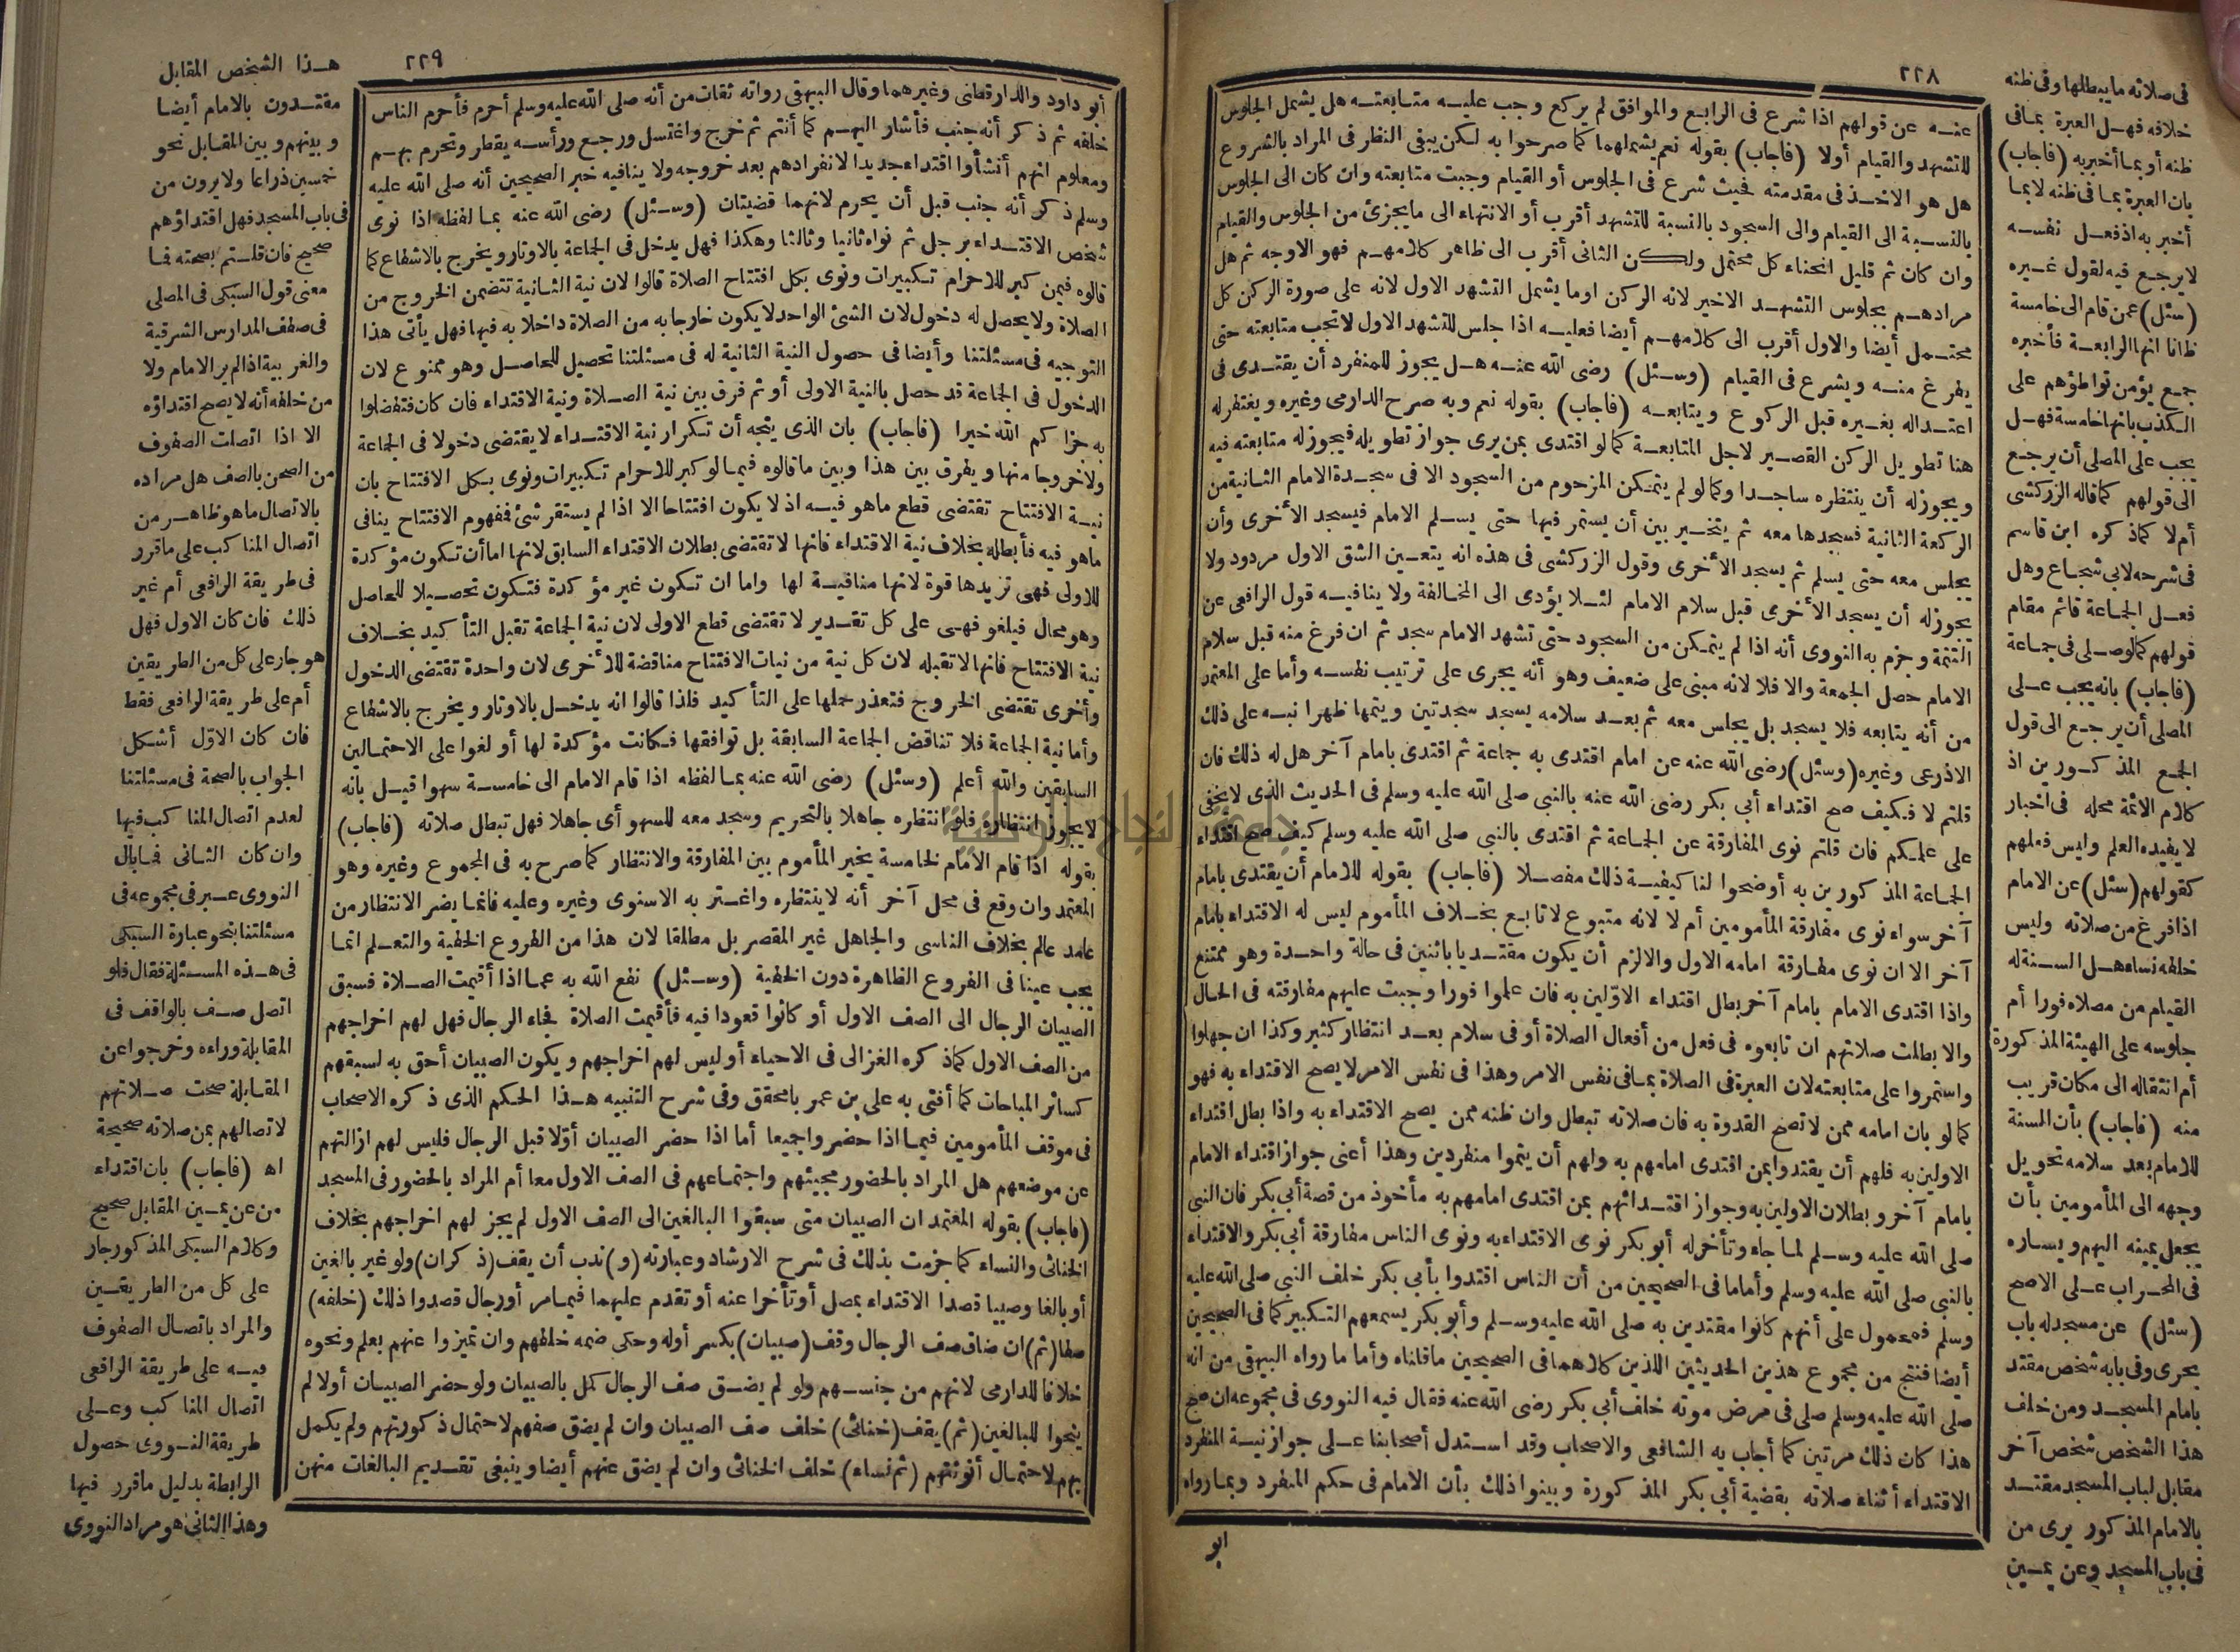 ٢٢٨
عنه عن قولهم اذا شرع فى الرابع والموافق لم يركع وجب عليه متابعته هل يشمل الجلوس
للتشهد والقيام أولا (فاجاب) بقوله نعم يشملهما كما صرحوا به لكن يبقى النظر فى المراد بالشروع
هل هو الاخذ فى مقدمته فحيث شرع فى الجلوس أو القيام وجبت متابعته وان كان الى الجلوس
بالنسبة الى القيام والى السجود بالنسبة للتشهد أقرب أو الانتهاء الى ما يجزئ من الجلوس والقيام
وان كان ثم قليل انحناء كل محتمل ولكن الثانى أقرب الى ظاهر كلامهم فهو الاوجه ثم هل
مرادهم بجلوس التشهد الاخير لانه الركن اوما يشمل التشهد الاول لانه على صورة الركن كل
محتمل أيضا والاول أقرب الى كلامهم أيضا فعليه اذا جلس للتشهد الاول لاتجب متابعته حتى
يفرغ منه ويشرع فى القيام (وسئل) رضى الله عنه هل يجوز للمنفرد أن يقتدى فى
اعتداله بغيره قبل الركوع ويتابعه (فاجاب) بقوله نعم وبه صرح الدارمى وغيره ويغتفر له
هنا تطويل الركن القصير لاجل المتابعة كما لو اقتدى بمن يرى جواز تطويله فيجوز له متابعته فيه
ويجوز له أن ينتظره ساجدا وكما لو لم يتمكن المزحوم من السجود الا فى سجدة الامام الثانية من
الركعة الثانية فسجدها معه ثم يتخير بين أن يستمر فيها حتى يسلم الامام فيسجد الأخرى وأن
يجلس معه حتى يسلم ثم يسجد الأخرى وقول الزركشى فى هذه انه يتعين الشق الاول مردود ولا
يجوز له أن يسجد الأخرى قبل سلام الامام لئلا يؤدى الى المخالفة ولا ينافيه قول الرافعى عن
التتمة وجزم به النووى أنه اذا لم يتمكن من السجود حتى تشهد الامام سجد ثم ان فرغ منه قبل سلام
الامام حصل الجمعة والا فلا لانه مبنى على ضعيف وهو أنه يجرى على ترتيب نفسه وأما على المعتمد
من أنه يتابعه فلا يسجد بل يجلس معه ثم بعد سلامه يسجد سجدتين ويتمها ظهرا نبه على ذلك
الاذرعى وغيره (وسئل) رضى الله عنه عن امام اقتدى به جماعة ثم اقتدى بامام آخر هل له ذلك فان
قلتم لا فكيف صح اقتداء أبى بكر رضى الله عنه بالنبى صلى الله عليه وسلم فى الحديث الذى لا يخفى
على علمكم فان قلتم نوى المفارقة عن الجماعة ثم اقتدى بالنبى صلى الله عليه وسلم كيف صح اقتداء
الجماعة المذكورين به أوضحوا لنا كيفية ذلك مفصلا (فاجاب) بقوله للامام أن يقتدى بامام
آخر سواء نوى مفارقة المأمومين أم لا لانه متبوع لا تابع بخلاف المأموم ليس له الاقتداء بامام
آخر الا ان نوى مفارقة امامه الاول والالزم أن يكون مقتديا باثنين فى حالة واحدة وهو ممتنع
واذا اقتدى الامام بامام آخر بطل اقتداء الاوّلين به فان علموا فورا وجبت عليهم مفارقته فى الحال
والا بطلت صلاتهم ان تابعوه فى فعل من أفعال الصلاة أو فى سلام بعد انتظار كثير وكذا ان جهلوا
واستمروا على متابعته لان العبرة فى الصلاة بمافى نفس الامر وهذا فى نفس الامر لا يصح الاقتداء به فهو
كما لو بان امامه ممن لاتصح القدوة به فان صلاته تبطل وان ظنه ممن يصح الاقتداء به واذا بطل اقتداء
الاولين به فلهم أن يقتدوا بمن اقتدى امامهم به ولهم أن يتموا منفردين وهذا أعنى جواز اقتداء الامام
بامام آخر وبطلان الاولين به وجواز اقتدائهم بمن اقتدى امامهم به مأخوذ من قصة أبى بكر فان النبى
صلى الله عليه وسلم لما جاء وتأخر له أبو بكر نوى الاقتداء به ونوى الناس مفارقة أبى بكر والاقتداء
بالنبى صلى الله عليه وسلم وأما ما فى الصحيحين من أن الناس اقتدوا بأبى بكر خلف النبى صلى الله عليه
وسلم فمحمول على أنهم كانوا مقتدين به صلى الله عليه وسلم وأبو بكر يسمعهم التكبير كما فى الصحيحين
أيضا فنتج من مجموع هذين الحديثين اللذين كلاهما فى الصحيحين ماقلناه وأما ما رواه البيهقى من انه
صلى الله عليه وسلم صلى فى مرض موته خلف أبى بكر رضى الله عنه فقال فيه النووى فى مجموعه ان صح
هذا كان ذلك مرتين كما أجاب به الشافعى والاصحاب وقد استدل أصحابنا على جواز نية المنفرد
الاقتداء أثناء صلاته بقضية أبى بكر المذكورة وبينوا ذلك بأن الامام فى حكم المنفرد وبما رواه
ابو
فى صلاته ما يبطلها وفى ظنه
خلافه فهل العبرة بمافى
ظنه أو بما أخبر به (فاجاب)
بان العبرة بما فى ظنه لا بما
أخبر به اذ فعل نفسه
لا يرجع فيه لقول غيره
(سئل) عمن قام الى خامسة
ظانا انها الرابعة فأخبره
جمع يؤمن تواطؤهم على
الكذب بانها خامسة فهل
يجب على المصلى أن يرجع
الى قولهم كما قاله الزركشى
أم لا كما ذكره ابن قاسم
فى شرحه لابى شجاع وهل
فعل الجماعة قائم مقام
قولهم كما لو صلى فى جماعة
(فاجاب) بانه يجب على
المصلى أن يرجع الى قول
الجمع المذكورين اذ
كلام الائمة محله فى اخبار
لا يفيده العلم وليس فعلهم
كقولهم (سئل) عن الامام
اذا فرغ من صلاته وليس
خلفه نساء هل السنة له
القيام من مصلاه فورا أم
جلوسه على الهيئة المذكورة
أم انتقاله الى مكان قريب
منه (فاجاب) بأن السنة
للامام بعد سلامه تحويل
وجهه الى المأمومين بأن
يجعل يمينه اليهم ويساره
فى المحراب على الاصح
(سئل) عن مسجد له باب
بحرى وفى بابه شخص مقتد
بامام المسجد ومن خلف
هذا الشخص شخص آخر
مقابل لباب المسجد مقتد
بالامام المذكور يرى من
فى باب المسجد وعن يمين
٢٢٩
أبو داود والدارقطنى وغيرهما وقال البيهقى رواته ثقات من أنه صلى الله عليه وسلم أحرم فأحرم الناس
خلفه ثم ذكر أنه جنب فأشار اليهم كما أنتم ثم خرج واغتسل ورجع ورأسه يقطر وتحرم بهم
ومعلوم انهم أنشأوا اقتداء جديدا لانفرادهم بعد خروجه ولا ينافيه خبر الصحيحين أنه صلى الله عليه
وسلم ذكر أنه جنب قبل أن يحرم لانهما قضيتان (وسئل) رضى الله عنه بما لفظه اذا نوى
شخص الاقتداء برجل ثم نواه ثانيا وثالثا وهكذا فهل يدخل فى الجماعة بالاوتار ويخرج بالاشفاع كما
قالوه فيمن كبر للاحرام تكبيرات ونوى بكل افتتاح الصلاة قالوا لان نية الثانية تتضمن الخروج من
الصلاة ولا يحصل له دخول لان الشئ الواحد لا يكون خارجا به من الصلاة داخلا به فيها فهل يأتى هذا
التوجيه فى مسئلتنا وأيضا فى حصول النية الثانية له فى مسئلتنا تحصيل للحاصل وهو ممنوع لان
الدخول فى الجماعة قد حصل بالنية الاولى أو ثم فرق بين نية الصلاة ونية الاقتداء فان كان فتفضلوا
به جزاكم الله خيرا (فاجاب) بان الذى يتجه أن تكرار نية الاقتداء لا يقتضى دخولا فى الجماعة
ولا خروجا منها ويفرق بين هذا وبين ماقالوه فيما لو كبر للاحرام تكبيرات ونوى بكل الافتتاح بان
نية الافتتاح تقتضى قطع ماهو فيه اذ لا يكون افتتاحا الا اذا لم يستقر شئ ففهوم الافتتاح ينافى
ماهو فيه فأبطله بخلاف نية الاقتداء فانها لا تقتضى بطلان الاقتداء السابق لانها اما أن تكون مؤكدة
للاولى فهى تزيدها قوة لانها منافية لها واما ان تكون غير مؤكدة فتكون تحصيلا للحاصل
وهو محال فيلغو فهى على كل تقدير لا تقتضى قطع الاولى لان نية الجماعة تقبل التأكيد بخلاف
نية الافتتاح فانها لا تقبله لان كل نية من نيات الافتتاح مناقضة للأخرى لان واحدة تقتضى الدخول
وأخرى تقتضى الخروج فتعذر حملها على التأكيد فلذا قالوا انه يدخل بالاوتار ويخرج بالاشفاع
وأما نية الجماعة فلا تناقض الجماعة السابقة بل توافقها فكانت مؤكدة لها أو لغوا على الاحتمالين
السابقين والله أعلم (وسئل) رضى الله عنه بما لفظه اذا قام الامام الى خامسة سهوا قيل بانه
لا يجوز انتظاره فلو انتظره جاهلا بالتحريم وسجد معه للسهو أى جاهلا فهل تبطل صلاته (فاجاب)
بقوله اذا قام الامام لخامسة يخير المأموم بين المفارقة والانتظار كما صرح به فى المجموع وغيره وهو
المعتمد وان وقع فى محل آخر أنه لا ينتظره واغتر به الاسنوى وغيره وعليه فانما يضر الانتظار من
عامد عالم بخلاف الناسى والجاهل غير المقصر بل مطلقا لان هذا من الفروع الخفية والتعلم انما
يجب عينا فى الفروع الظاهرة دون الخفية (وسئل) نفع الله به عما اذا أقيمت الصلاة فسبق
الصبيان الرجال الى الصف الاول أو كانوا قعودا فيه فأقيمت الصلاة فجاء الرجال فهل لهم اخراجهم
من الصف الاول كما ذكره الغزالى فى الاحياء أو ليس لهم اخراجهم ويكون الصبيان أحق به لسبقهم
كسائر المباحات كما أفتى به على بن عمر بامحقق وفى شرح التنبيه هذا الحكم الذى ذكره الاصحاب
فى موقف المأمومين فيما اذا حضروا جميعا أما اذا حضر الصبيان أوّلا قبل الرجال فليس لهم ازالتهم
عن موضعهم هل المراد بالحضور مجيئهم واجتماعهم فى الصف الاول معا أم المراد بالحضور فى المسجد
(فاجاب) بقوله المعتمد ان الصبيان متى سبقوا البالغين الى الصف الاول لم يجز لهم اخراجهم بخلاف
الخناثى والنساء كما جزمت بذلك فى شرح الارشاد وعبارته (و) ندب أن يقف (ذكران) ولو غير بالغين
أو بالغا وصبيا قصدا الاقتداء بمصل أو تأخرا عنه أو تقدم عليهما فيما مر أو رجال قصدوا ذلك (خلفه)
صفا (ثم) ان ضاق صف الرجال وقف (صبيان) بكسر أوله وحكى ضمه خلفهم وان تميزوا عنهم بعلم ونحوه
خلافا للدارمى لانهم من جنسهم ولو لم يضق صف الرجال كمل بالصبيان ولو حضر الصبيان أولا لم
ينحوا للبالغين (ثم) يقف (خناثى) خلف صف الصبيان وان لم يضق صفهم لاحتمال ذكورتهم ولم يكمل
بهم لاحتمال أنوثتهم (ثم نساء) خلف الخناثى وان لم يضق عنهم أيضا وينبغى تقديم البالغات منهن
هذا الشخص المقابل
مقتدون بالامام أيضا
وبينهم وبين المقابل نحو
خمسين ذراعا ولا يرون من
فى باب المسجد فهل اقتداؤهم
صحيح فان قلتم بصحته فما
معنى قول السبكى فى المصلى
فى صفف المدارس الشرقية
والغربية اذا لم ير الامام ولا
من خلفه أنه لا يصح اقتداؤه
الا اذا اتصلت الصفوف
من الصحن بالصف هل مراده
بالاتصال ماهو ظاهر من
اتصال المناكب على ماقرر
فى طريقة الرافعى أم غير
ذلك فان كان الاول فهل
هو جار على كل من الطريقين
أم على طريقة الرافعى فقط
فان كان الاوّل أشكل
الجواب بالصحة فى مسئلتنا
لعدم اتصال المناكب فيها
وان كان الثانى فما بال
النووى عبر فى مجموعه فى
مسئلتنا بنحو عبارة السبكى
فى هذه المسئلة فقال فلو
اتصل صف بالواقف فى
المقابلة وراءه وخرجوا عن
المقابلة صحت صلاتهم
لاتصالهم بمن صلاته صحيحة
اه (فاجاب) بان اقتداء
من عن يمين المقابل صحيح
وكلام السبكى المذكور جار
على كل من الطريقين
والمراد باتصال الصفوف
فيه على طريقة الرافعى
اتصال المناكب وعلى
طريقة النووى حصول
الرابطة بدليل ماقرر فيها
وهذا الثانى هو مراد النووى
جامعة النجاح الوطنية